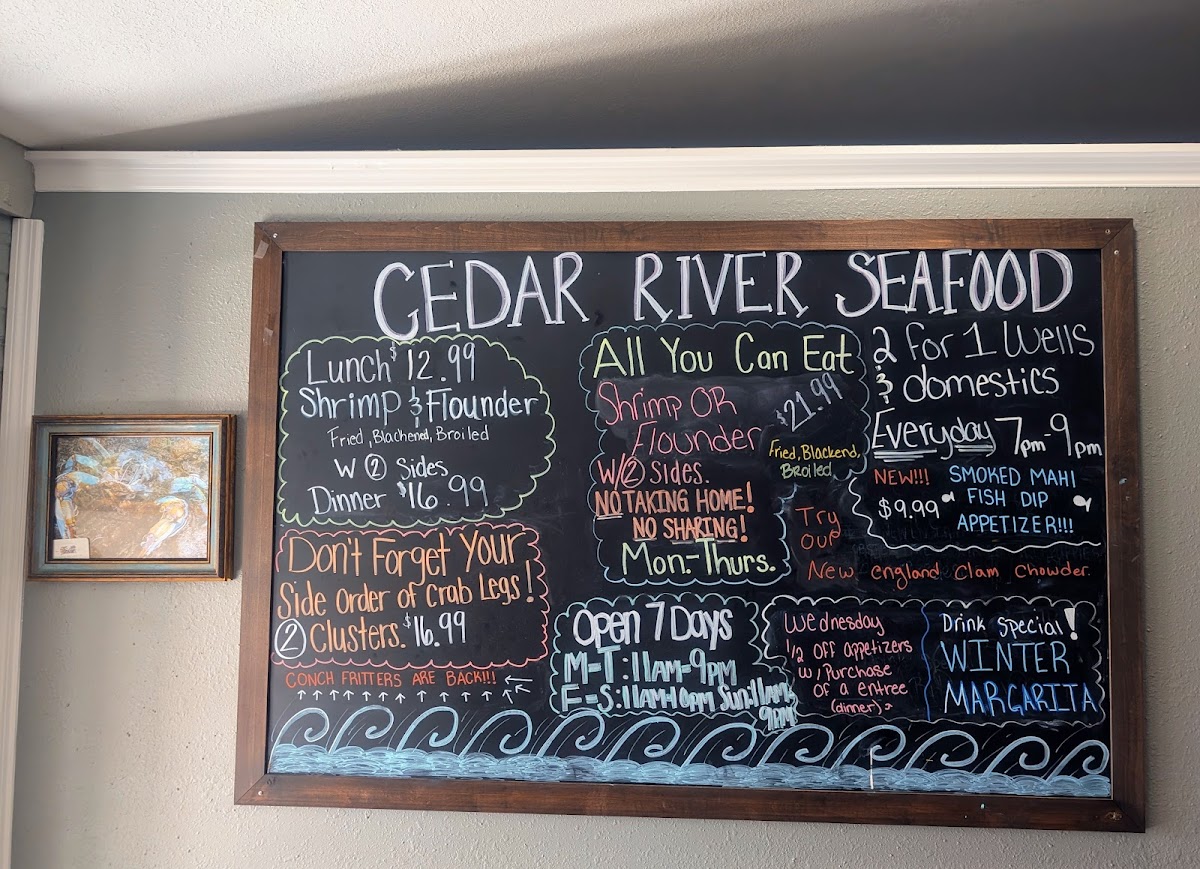 CEDAR RIVER SEAFOOD
Lunch $12.99
Shrimp & Flounder
Fried, Blackened, Broiled
W ② Sides
Dinner $16.99
Don't Forget Your
Side order of Crab Legs!
② Clusters. $16.99
CONCH FRITTERS ARE BACK!!!
All You Can Eat
Shrimp OR
Flounder
$21.99
Fried, Blackend,
Broiled
W/② Sides.
NO TAKING HOME!
NO SHARING!
Mon.-Thurs.
2 for 1 Wells
& domestics
Everyday 7pm-9pm
NEW!!!
$9.99
SMOKED MAHI
FISH DIP
APPETIZER!!!
Try
our
New england clam chowder.
Open 7 Days
M-T: 11am-9pm
F-S: 11am-10pm Sun: 11am-
9pm
Wednesday
1/2 off appetizers
w/ Purchase
of a entree
(dinner)
Drink Special!
WINTER
MARGARITA